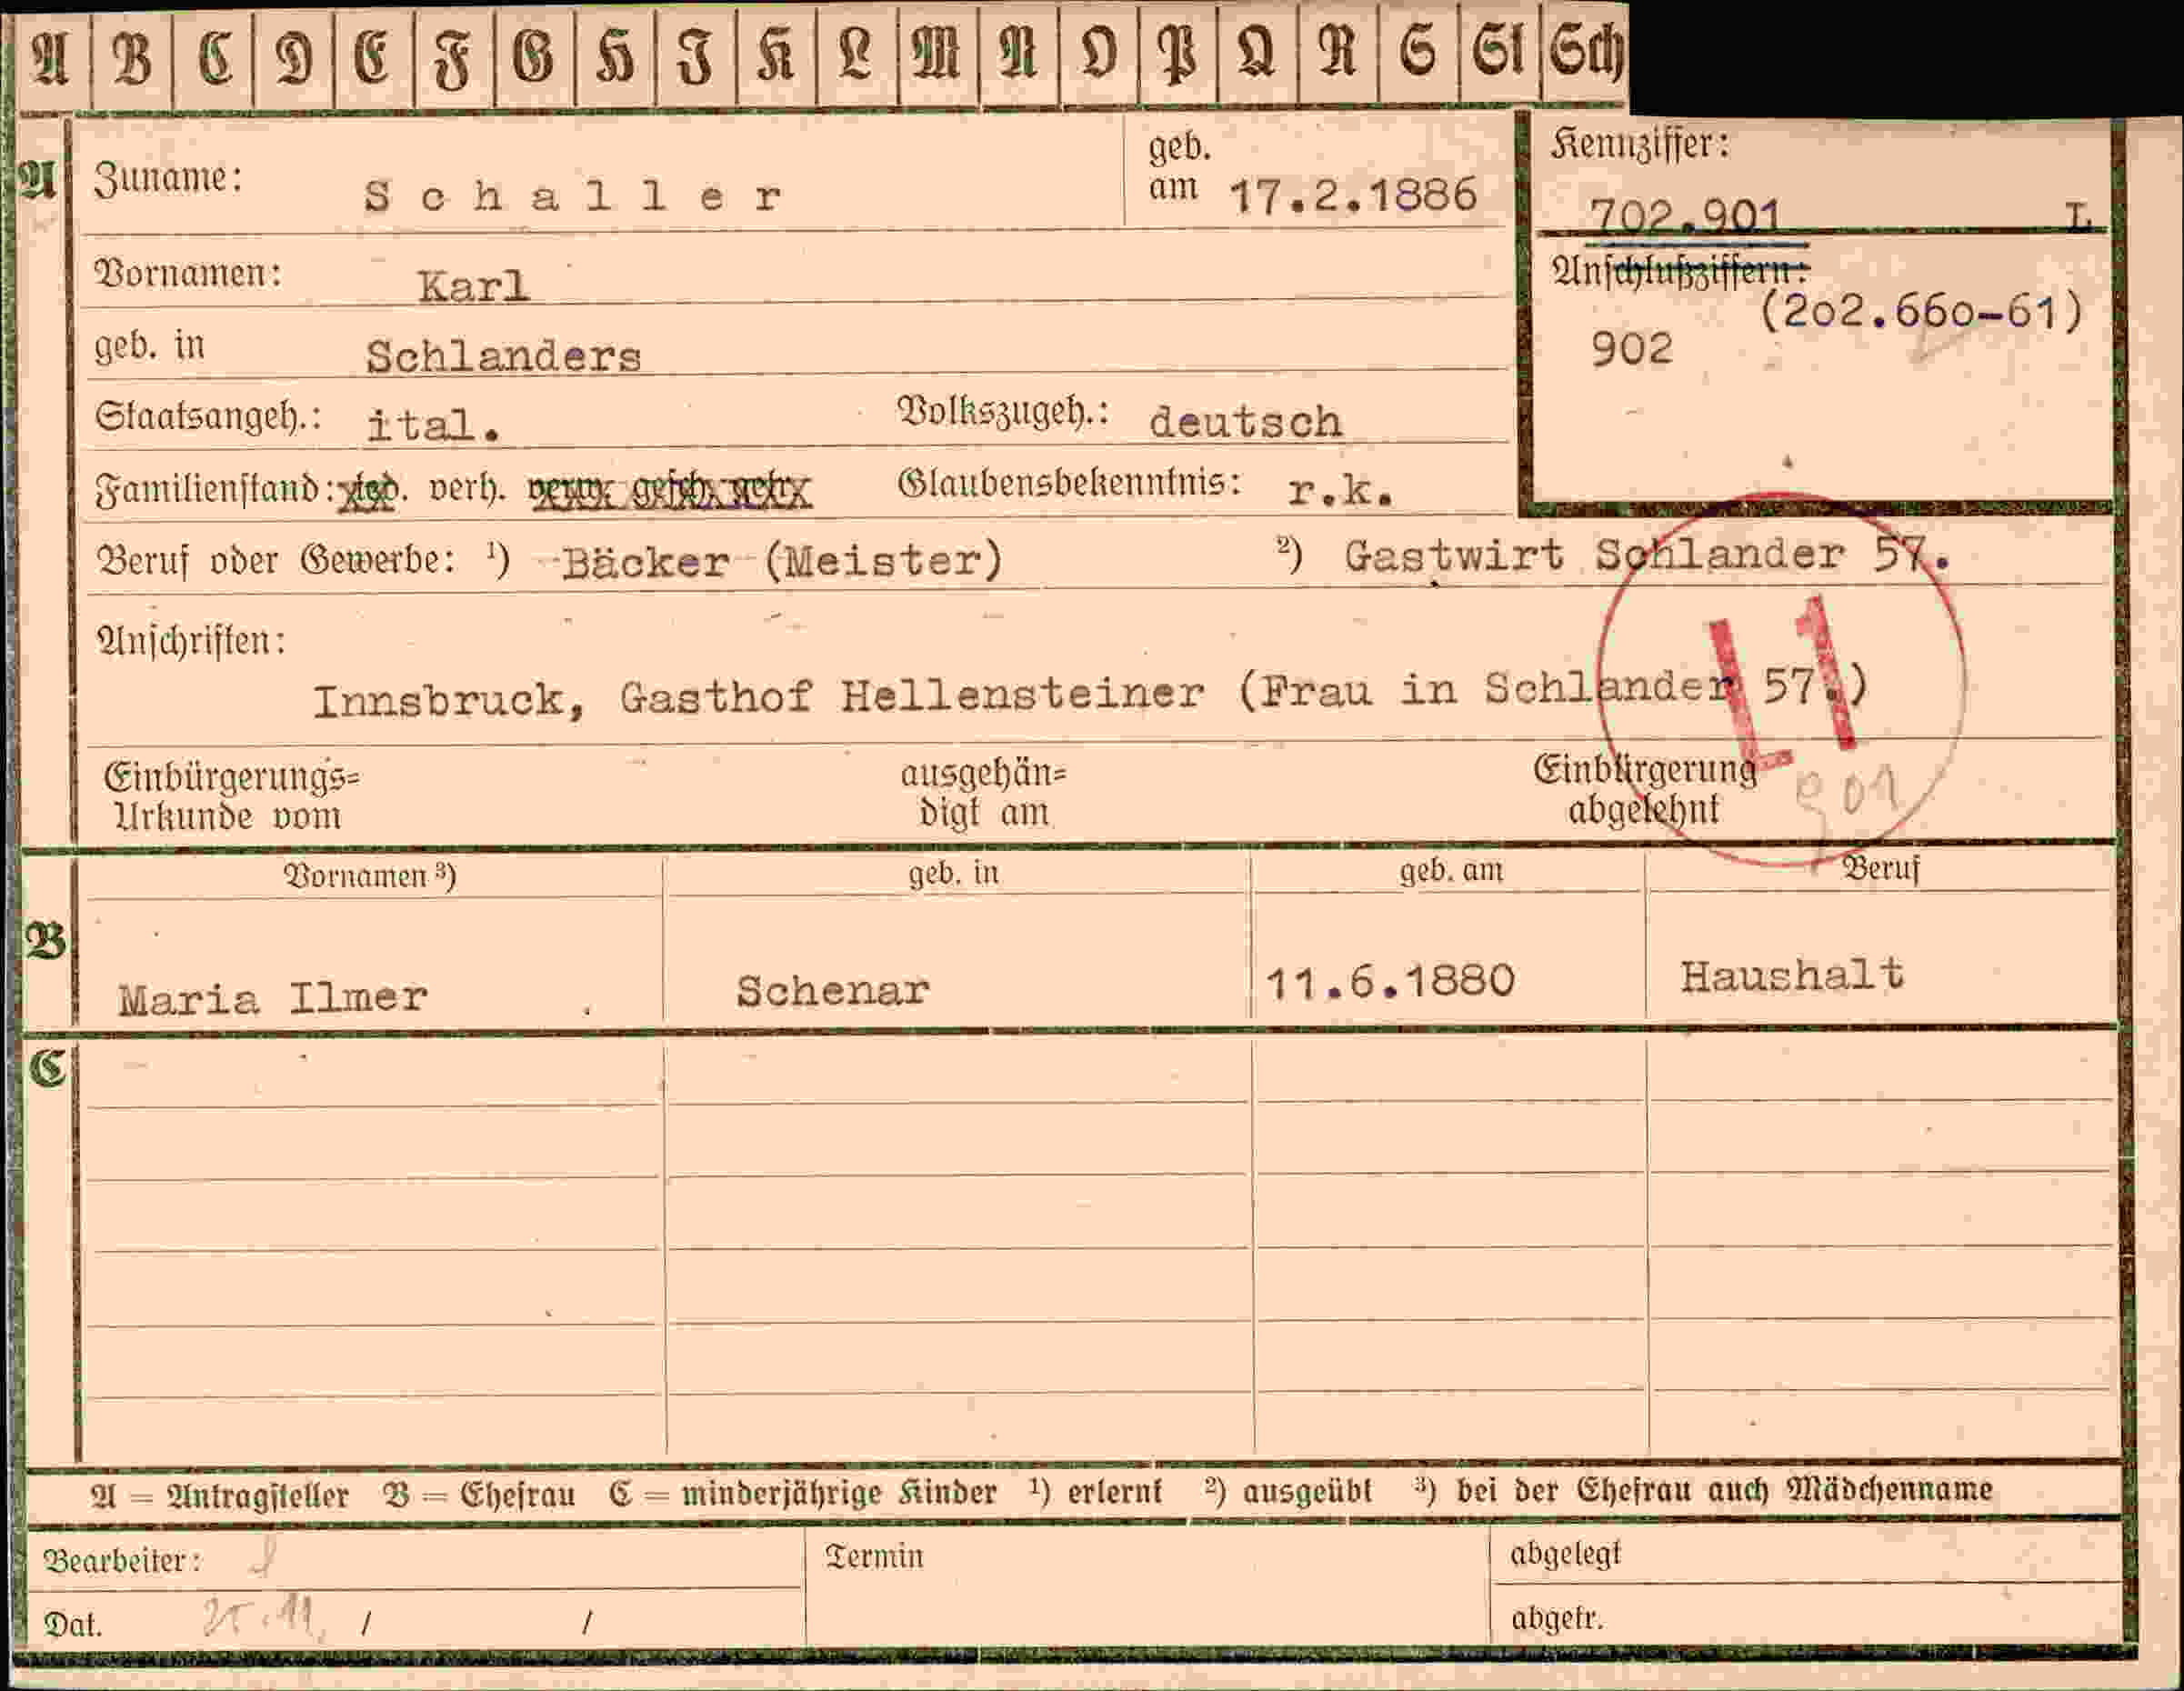 A B C D E F G H I K L M N O P Q R S St Sch
A Zuname: Schaller geb. am 17.2.1886
Kennziffer: 702.901 L
Vornamen: Karl
Anschlußziffern: (2o2.66o-61)
902
geb. in Schlanders
Staatsangeh.: ital. Volkszugeh.: deutsch
Familienstand: led. verh. verw. gesch. getr. Glaubensbekenntnis: r.k.
Beruf oder Gewerbe: ¹) Bäcker (Meister) ²) Gastwirt Schlander 57.
Anschriften:
Innsbruck, Gasthof Hellensteiner (Frau in Schlander 57.)
L1
Einbürgerungs= ausgehän= Einbürgerung
Urkunde vom digt am abgelehnt
901
Vornamen ³) geb. in geb. am Beruf
B Maria Ilmer Schenar 11.6.1880 Haushalt
C
A = Antragsteller B = Ehefrau C = minderjährige Kinder ¹) erlernt ²) ausgeübt ³) bei der Ehefrau auch Mädchenname
Bearbeiter: Termin abgelegt
Dat. 25.11. / / abgetr.